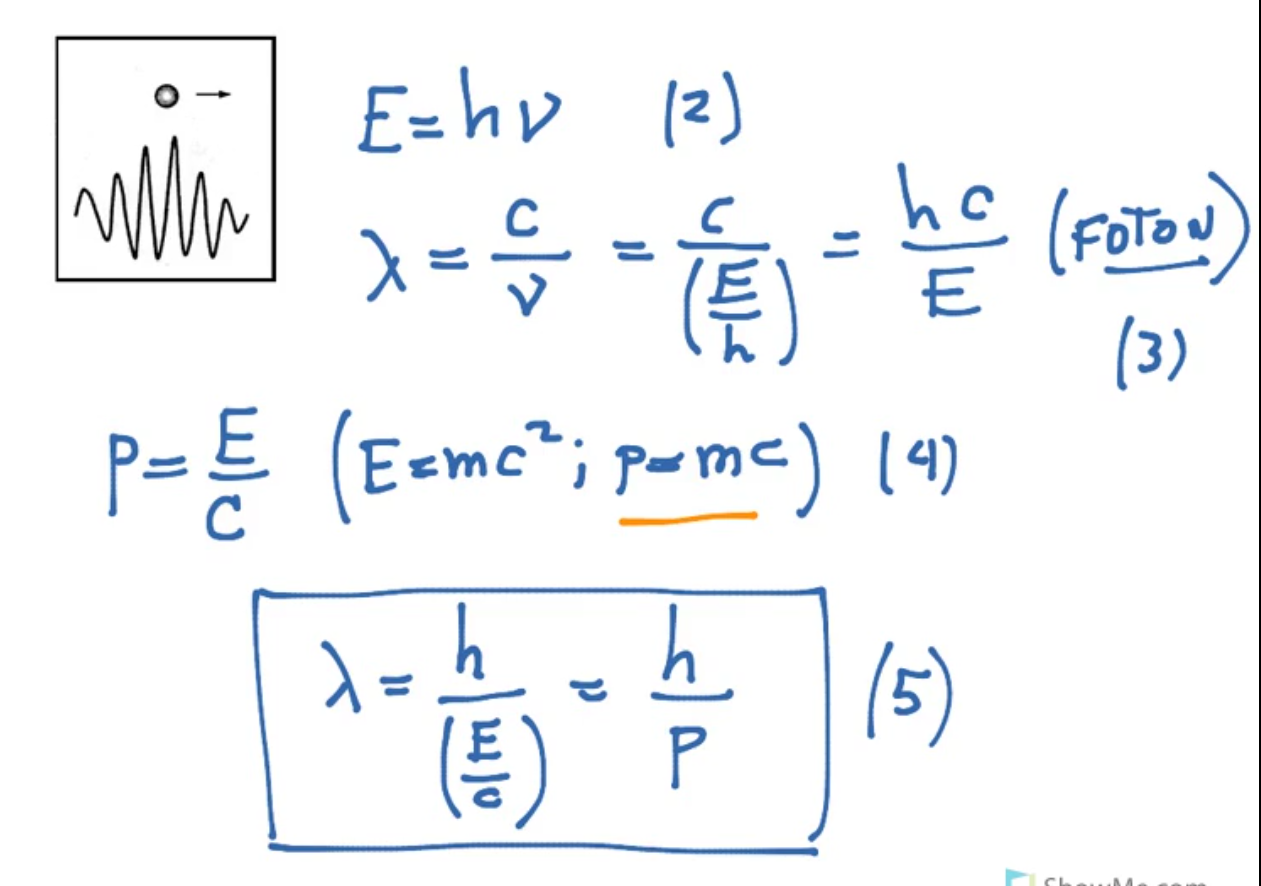 E=hν (2)
λ = c/ν = c/(E/h) = hc/E (FOTON)
(3)
P=E/C (E=mc²; p=mc) (4)
λ = h/(E/c) = h/P (5)
ShowMe.com